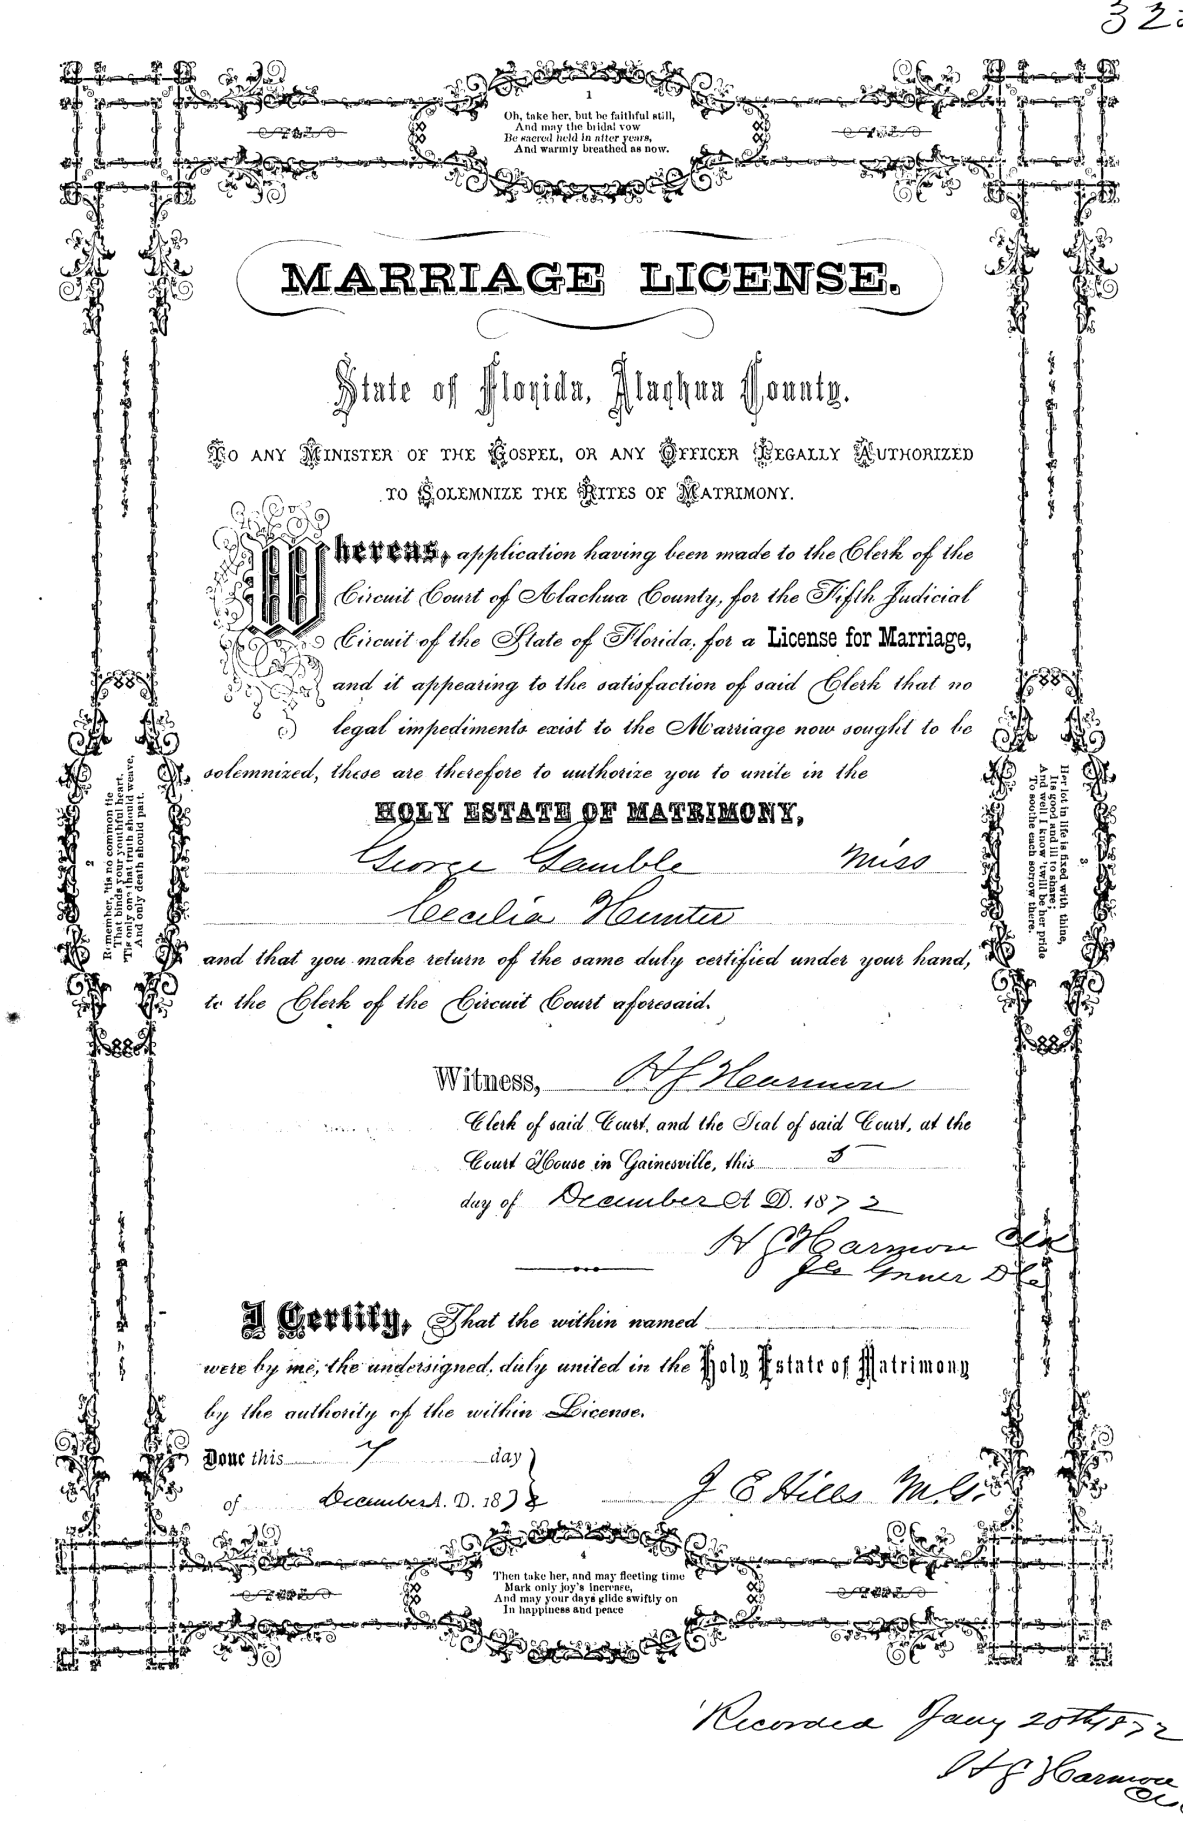 1
Oh, take her, but be faithful still,
And may the bridal vow
Be sacred held in after years,
And warmly breathed as now.
MARRIAGE LICENSE.
State of Florida, Alachua County.
TO ANY MINISTER OF THE GOSPEL, OR ANY OFFICER LEGALLY AUTHORIZED
TO SOLEMNIZE THE RITES OF MATRIMONY.
Whereas, application having been made to the Clerk of the
Circuit Court of Alachua County, for the Fifth Judicial
Circuit of the State of Florida, for a License for Marriage,
and it appearing to the satisfaction of said Clerk that no
legal impediments exist to the Marriage now sought to be
solemnized, these are therefore to authorize you to unite in the
HOLY ESTATE OF MATRIMONY,
George Gamble Miss
Cecilia Hunter
and that you make return of the same duly certified under your hand,
to the Clerk of the Circuit Court aforesaid.
2
Remember, 'tis no common tie
That binds your youthful heart,
'Tis only one that truth should weave,
And only death should part.
3
Her lot in life is fixed with thine,
Its good and ill to share;
And well I know 'twill be her pride
To soothe each sorrow there.
Witness, H J Harmon
Clerk of said Court, and the Seal of said Court, at the
Court House in Gainesville, this 5
day of December A D. 1872
H J Harmon Clk
I Certify, That the within named
were by me, the undersigned, duly united in the Holy Estate of Matrimony
by the authority of the within License.
Done this 7 day
of December A. D. 1872
J E Hills M.G.
4
Then take her, and may fleeting time
Mark only joy's increase,
And may your days glide swiftly on
In happiness and peace
Recorded Jany 20th 1872
H J Harmon